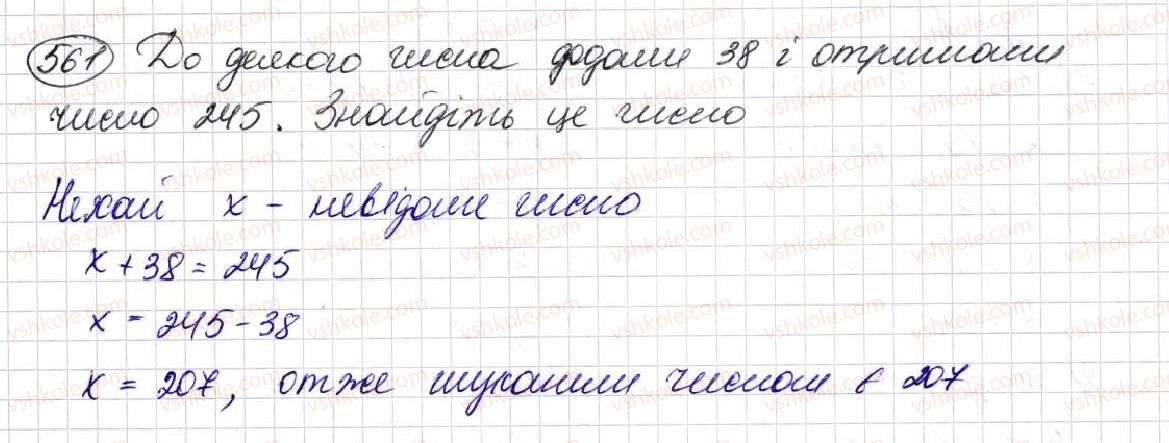 561 До деякого числа додали 38 і отримали
число 245. Знайдіть це число
Нехай x - невідоме число
x + 38 = 245
x = 245 - 38
x = 207, отже шуканим числом є 207